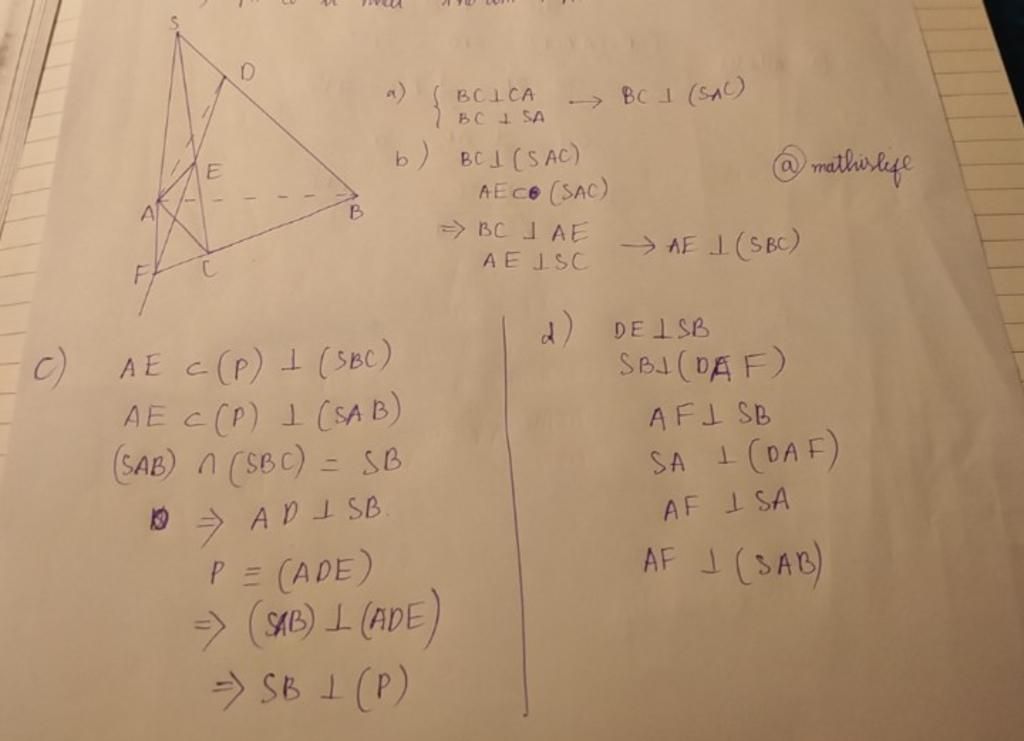 S
D
E
A
B
F
C
a) { BC ⊥ CA → BC ⊥ (SAC)
BC ⊥ SA
b) BC ⊥ (SAC)
@mathislife
AE ⊂ (SAC)
⇒ BC ⊥ AE → AE ⊥ (SBC)
AE ⊥ SC
c) AE ⊂ (P) ⊥ (SBC)
AE ⊂ (P) ⊥ (SAB)
(SAB) ∩ (SBC) = SB
⇒ AD ⊥ SB.
P ≡ (ADE)
⇒ (SAB) ⊥ (ADE)
⇒ SB ⊥ (P)
d) DE ⊥ SB
SB ⊥ (DAF)
AF ⊥ SB
SA ⊥ (DAF)
AF ⊥ SA
AF ⊥ (SAB)